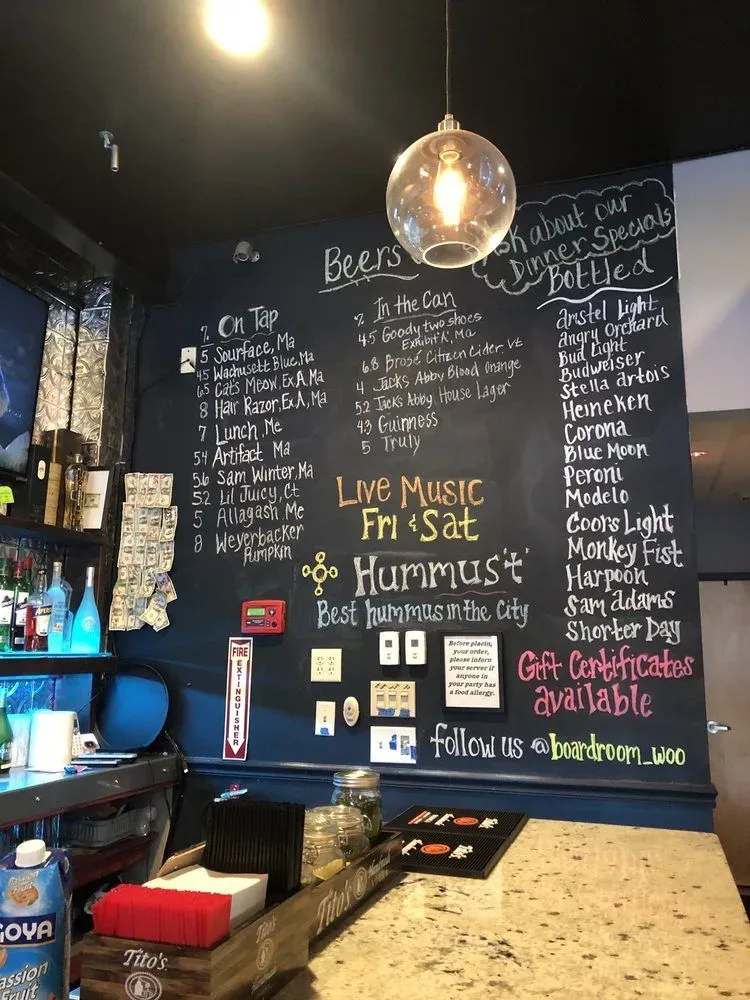 Ask about our
Dinner Specials
Beers
% On Tap
5 Sourface, Ma
4.5 Wachusett Blue, Ma
6.5 Cats Meow Ex.A, Ma
8 Hair Razor, Ex.A, Ma
7 Lunch, Me
5.4 Artifact Ma
5.6 Sam Winter, Ma
5.2 Lil Juicy, Ct
5 Allagash, Me
8 Weyerbacker
Pumpkin
% In the Can
4.5 Goody two shoes
Exhibit 'A', Ma
6.8 Brosé Citizen Cider, Vt
4 Jacks Abby Blood Orange
5.2 Jacks Abby House Lager
4.3 Guinness
5 Truly
Bottled
Amstel Light
Angry Orchard
Bud Light
Budweiser
Stella Artois
Heineken
Corona
Blue Moon
Peroni
Modelo
Coors Light
Monkey Fist
Harpoon
Sam adams
Shorter Day
Live Music
Fri & Sat
Hummus "it"
Best hummus in the City
Gift Certificates
available
follow us @boardroom_woo
FIRE EXTINGUISHER
Before placing
your order,
please inform
your server if
anyone in
your party has
a food allergy.
Tito's
Tito's
Tito's
Handmade
Passion
Fruit
GOYA
Passion
Fruit